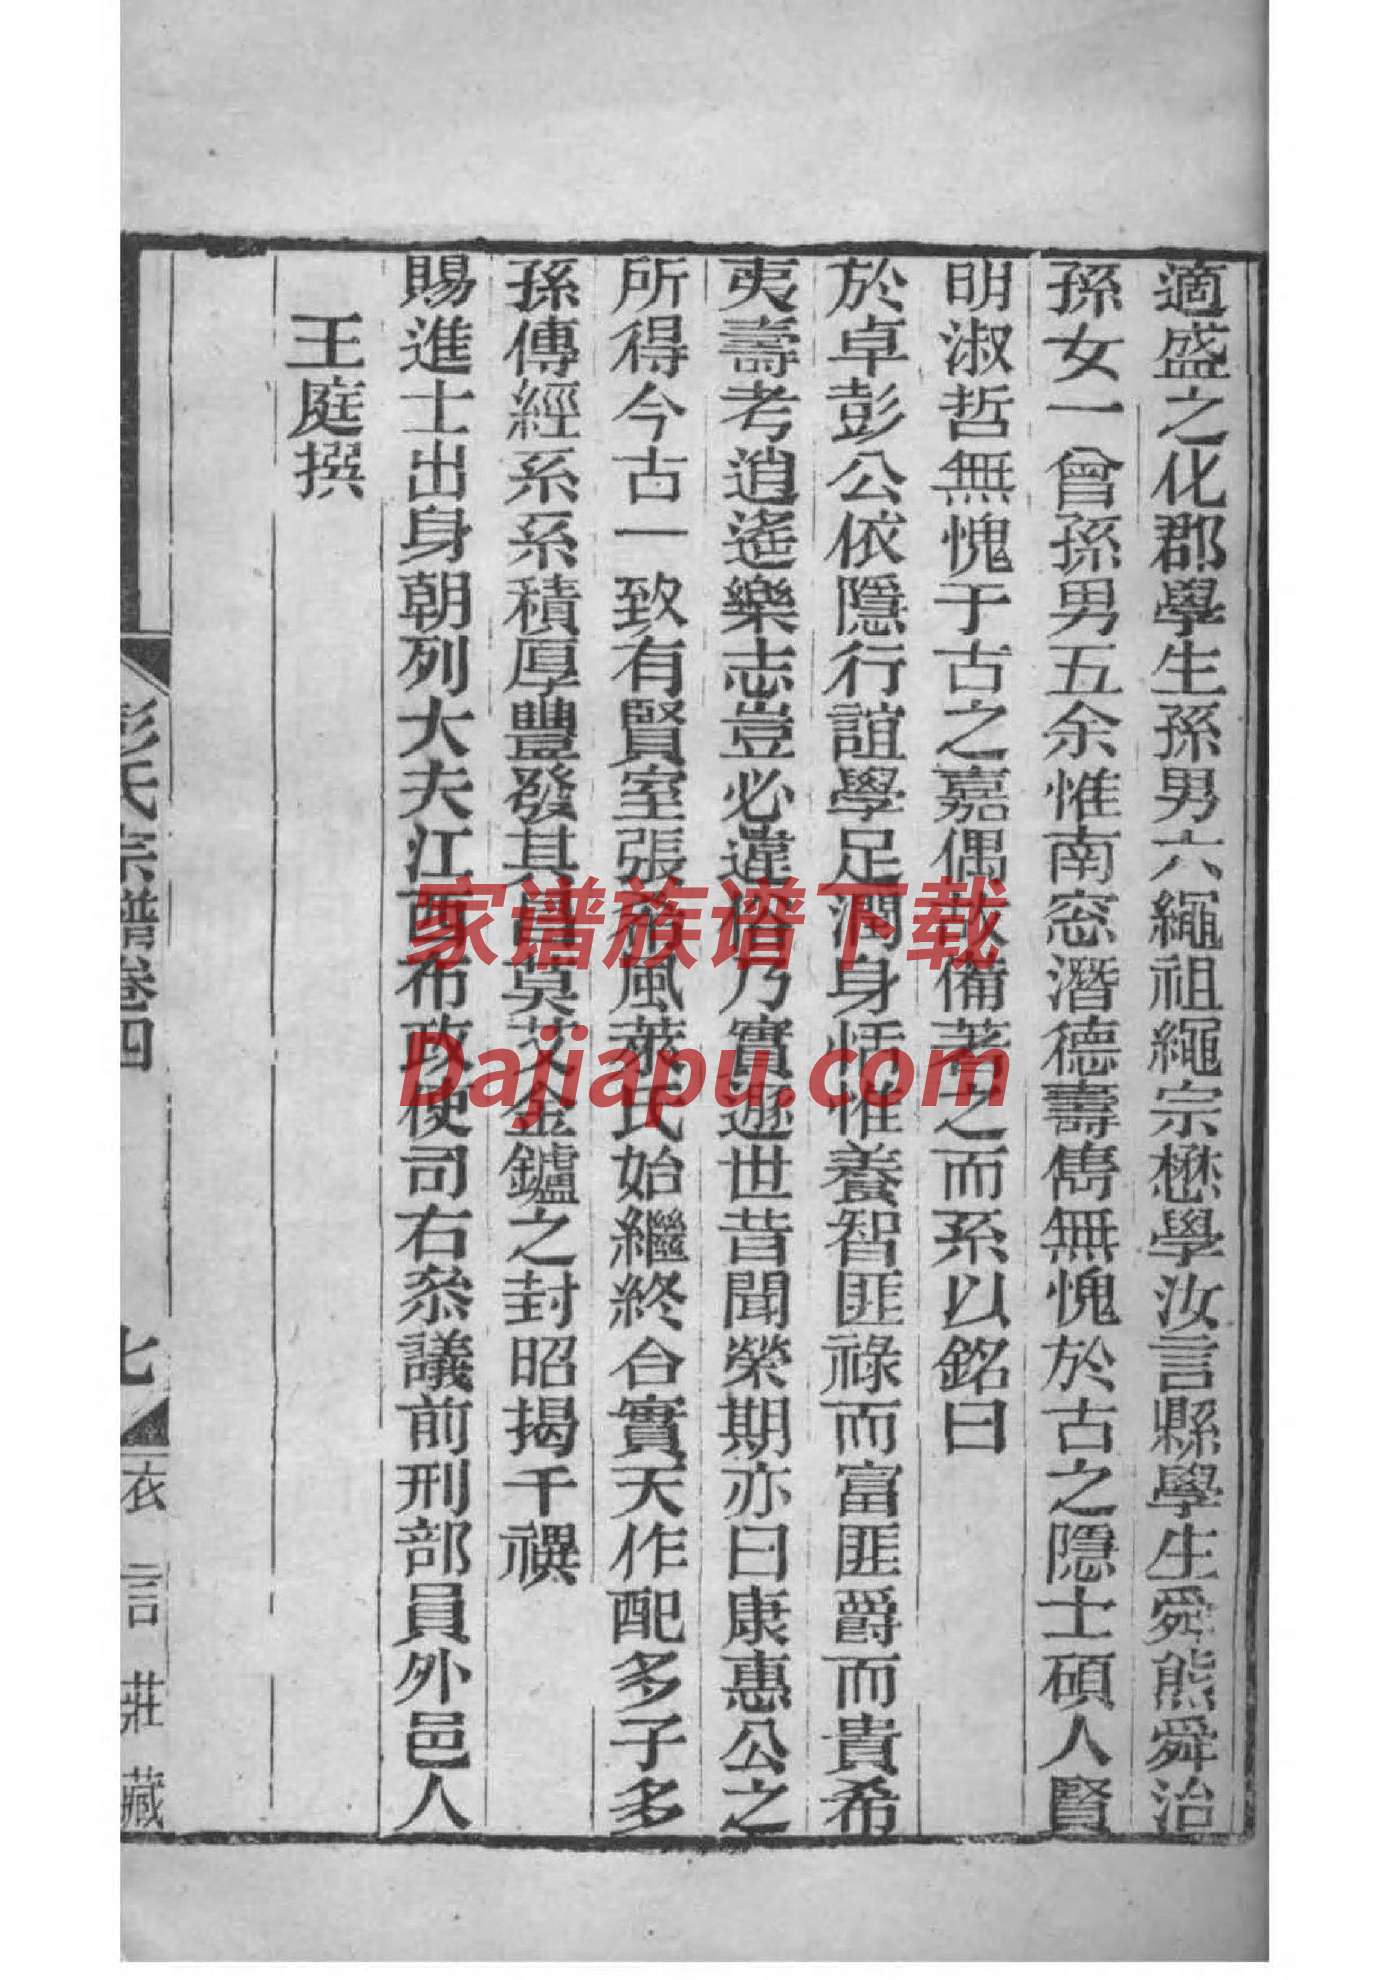 適盛之化郡學生孫男六繩祖繩宗懋學汝言縣學生舜熊舜治
孫女一曾孫男五余惟南窓潛德壽雋無愧於古之隱士碩人賢
明淑哲無愧于古之嘉偶故備著之而系以銘曰
於卓彭公依隱行誼學足潤身恬惟養智匪祿而富匪爵而貴希
夷壽考逍遙樂志豈必違俗乃實遯世昔聞榮期亦曰康惠公之
所得今古一致有賢室張桓風萊氏始繼終合實天作配多子多
孫傳經系系積厚豐發其昌莫艾金鑪之封昭揭千禩
賜進士出身朝列大夫江西布政使司右叅議前刑部員外邑人
王庭撰
彭氏宗譜卷四
七
衣言莊藏
家谱族谱下载
Dajiapu.com